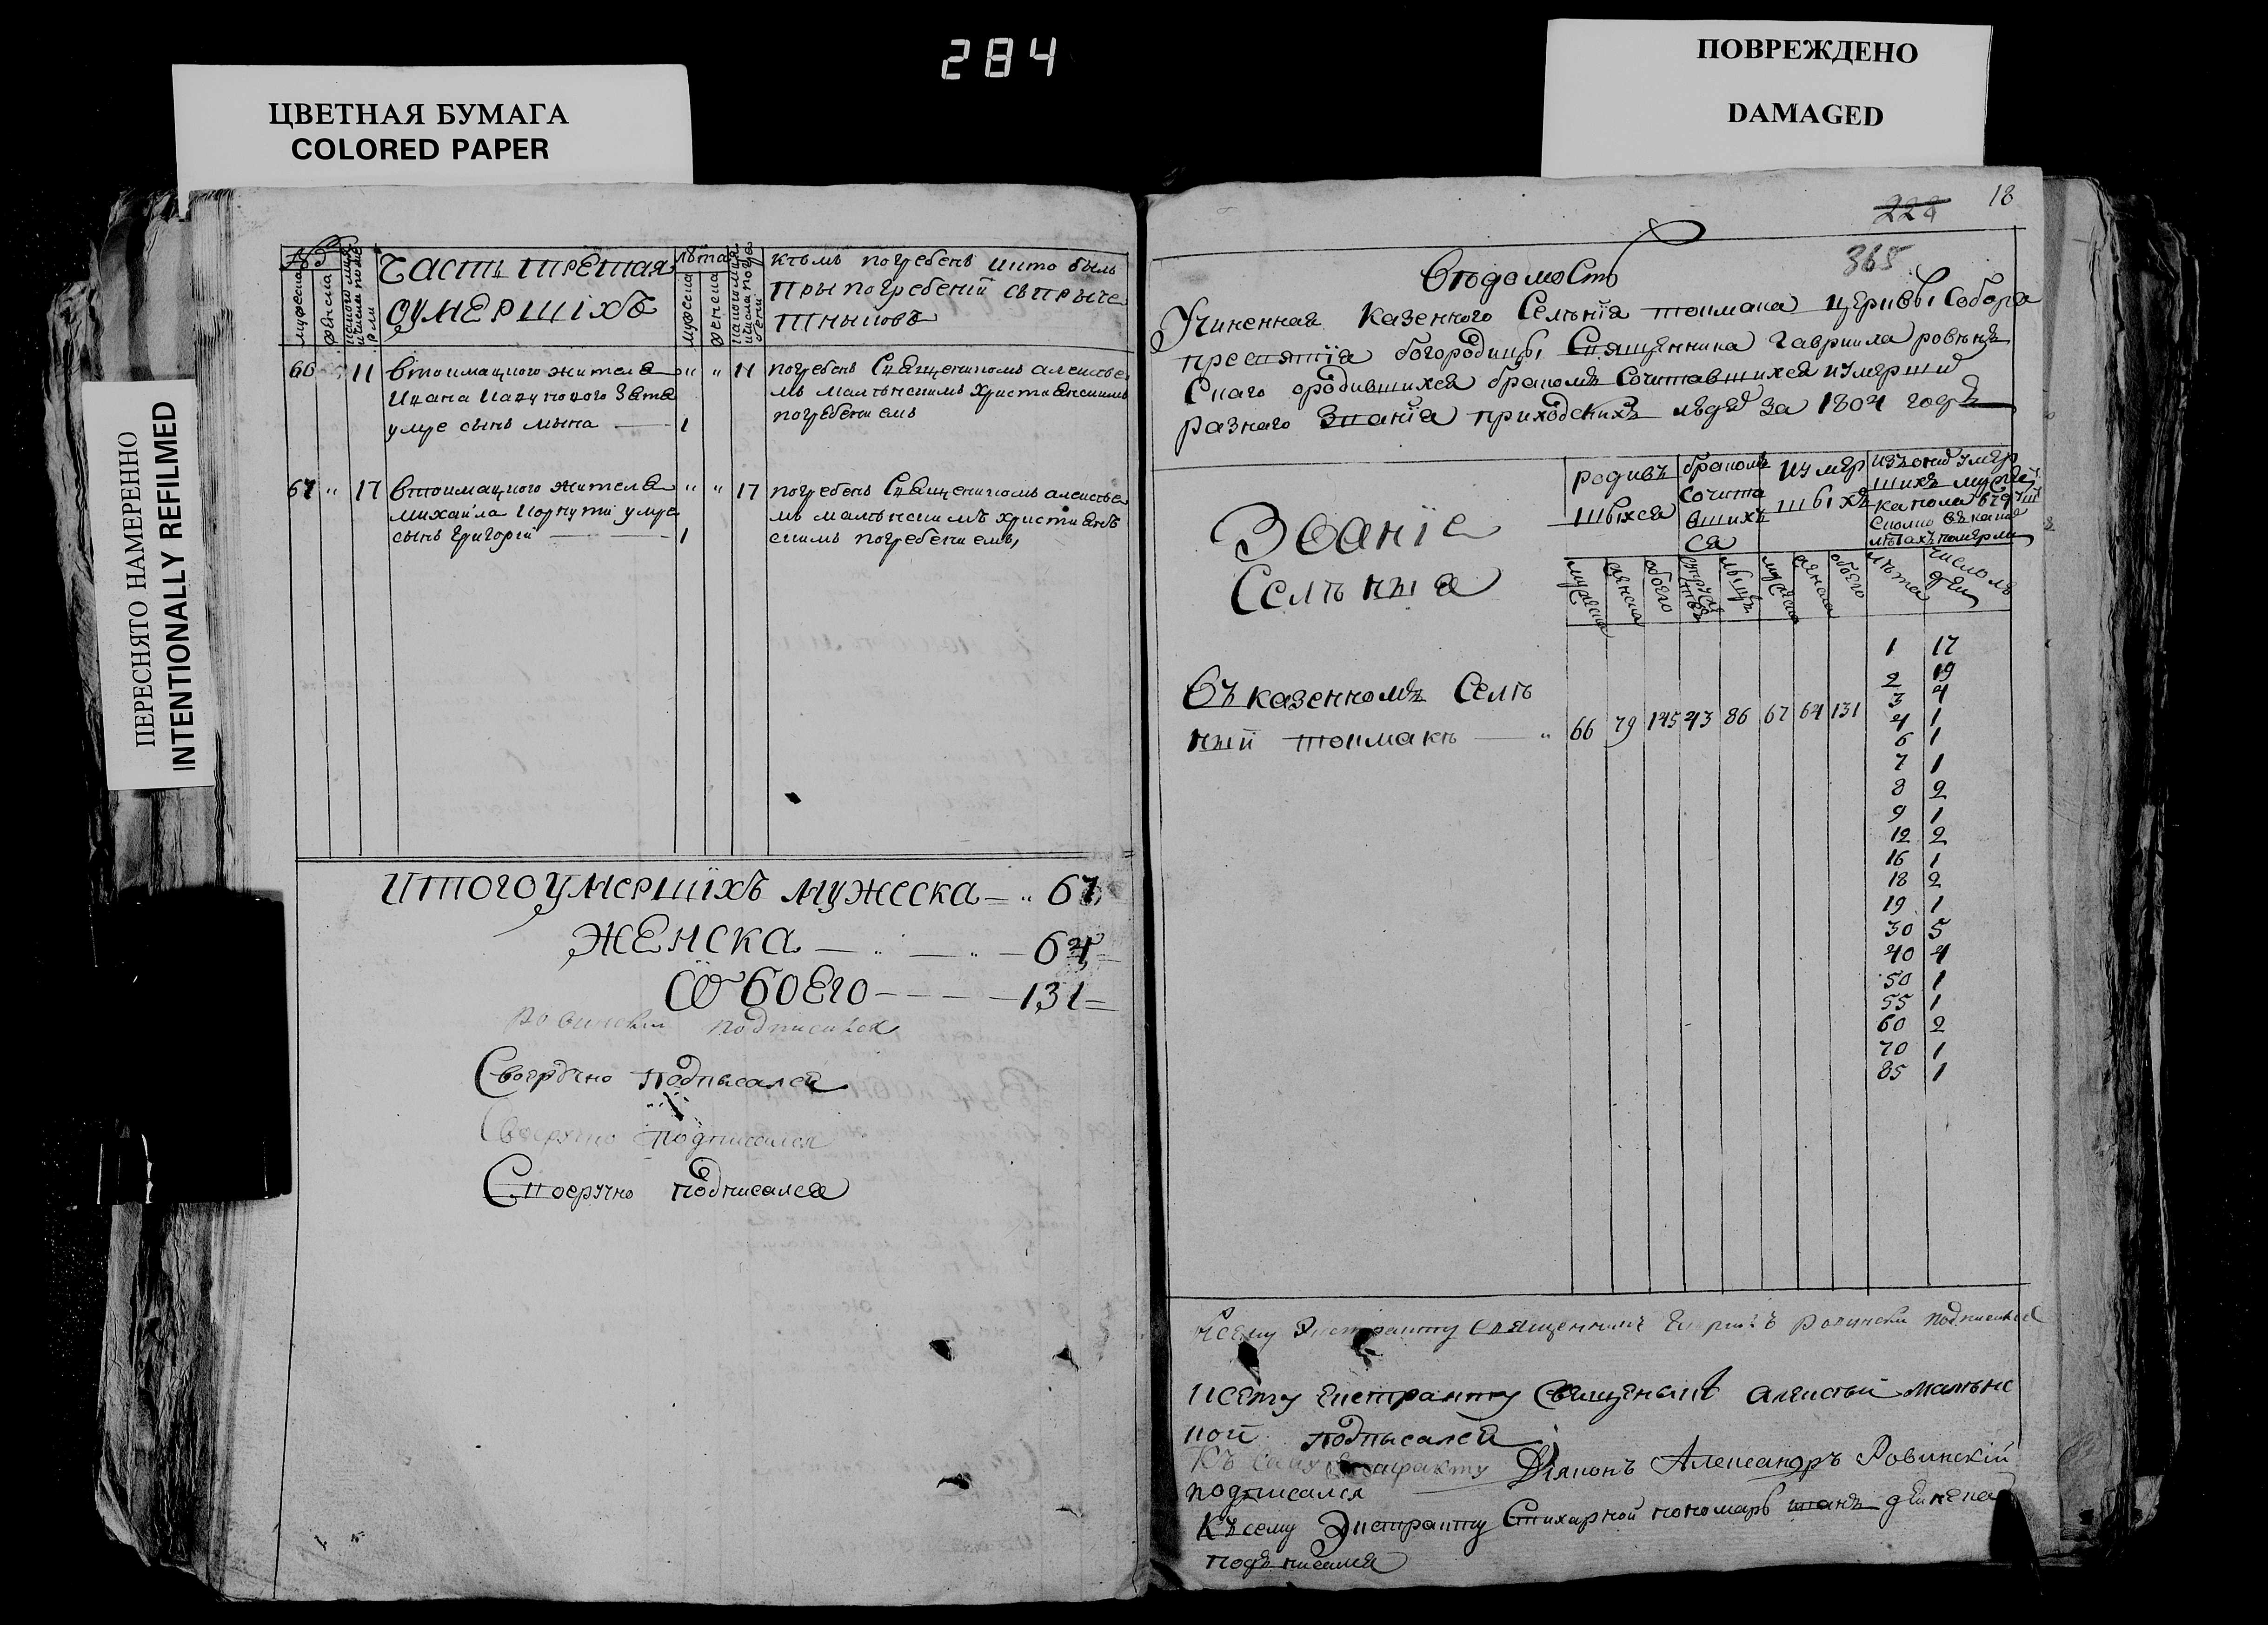 284
ЦВЕТНАЯ БУМАГА
COLORED PAPER
ПОВРЕЖДЕНО
DAMAGED
ПЕРЕСНЯТО НАМЕРЕННО
INTENTIONALLY REFILMED
№
мужеска
женска
Часть третая
оумершихъ
лѣта
мужеска
женска
кѣмъ погребенъ и кто былъ
при погребеніи съ причетныковъ
66 11 втокмацкого жителя
Ивана зятя
умре сынъ 1
" " 11 погребенъ Священикомъ алексѣе
мъ малѣнскимъ христианскимъ
погребениемъ
67 " 17 втокмацкого жителя
михайла умре
сынъ григорій 1
" " 17 погребенъ Священикомъ алексѣе
мъ малѣнскимъ христианъ
скимъ погребениемъ,
итого умершихъ мужеска — " 67,
женска — " — " — 64,
обоего — — — — 131
ровински подписался
Своеручно подписался
Своеручно подписался
Своеручно подписался
18
224
365
Вѣдомость
Учиненная казенного Селѣнія токмака церквы Собора
пресвятія богородицы Священника гавриила ровѣнъ
скаго ородившихся бракомъ Сочитавшихся иумерши
разнаго Званія приходскихъ людей за 1804 годъ
Званіе
Селѣния
родивъ
шыхся
бракомъ
сочита
вшихъ
ся
иумер
шыхъ
мужеска
женска
обоего
мужеска
женска
обоего
лѣта
число лю
дей
Въ казенномъ Селѣ
ний токмакъ — " 66 79 145 43 86 67 64 131
1 17
2 19
3 4
4 1
6 1
7 1
8 2
9 1
12 2
16 1
18 2
19 1
30 5
40 4
50 1
55 1
60 2
70 1
85 1
Ксему Экстракту священникъ ровински подписался
ксему екстракту Свещеникъ алексѣй малѣнс
кой подписался
Къ сему екстракту Діяконъ Александръ Ровинскій
подписался
Къ сему Экстракту Стихарной пономарь
подъписался